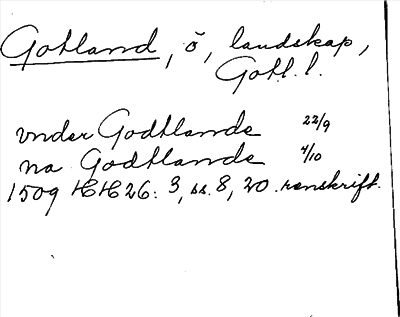 Gotland, ö, landskap,
Gotl. l.
vnder Godtlande 22/9
na Godtlande 4/10
1509 HH 26: 3, ss. 8, 20. renskrift.